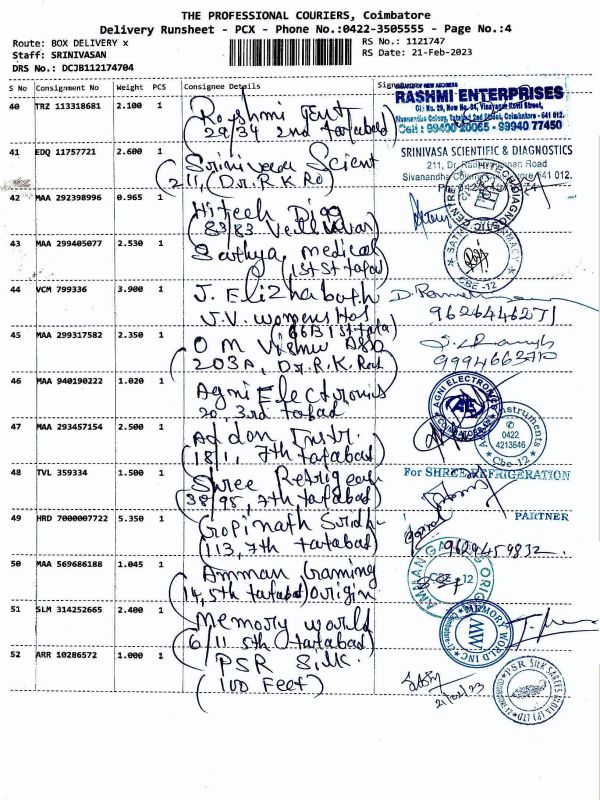 THE PROFESSIONAL COURIERS, Coimbatore
Delivery Runsheet - PCX - Phone No.:0422-3505555 - Page No.:4
Route: BOX DELIVERY x
RS No.: 1121747
Staff: SRINIVASAN
RS Date: 21-Feb-2023
DRS No.: DCJB112174704
S No Consignment No Weight PCS Consignee Details Signature
40 TRZ 113318681 2.100 1
29/34 2nd tatabad)
RASHMI ENTERPRISES
Cell : 99400 20065 - 99940 77450
41 EDQ 11757721 2.600 1 Srinivasa Scient
(211, Dr. R K Ro
SRINIVASA SCIENTIFIC & DIAGNOSTICS
211, Dr. Radhakrishnan Road
42 MAA 292398996 0.965 1 Hitech Diag
(83/83
43 MAA 299405077 2.530 1 Sathya medical
(1st St tatabad
SATHYA PHARMACY
CBE-12
44 VCM 799336 3.900 1 J. Elizhabath
J.V. womens Hos
45 MAA 299317582 2.350 1 O M Vishnu
(203A, Dr. R.K. Road
9994663710
46 MAA 940190222 1.020 1 Agni Electronics
20 3rd tatabad
AGNI ELECTRONICS
47 MAA 293457154 2.500 1 Addon Instr.
(18/11 7th tatabad)
Instruments
0422
4213646
Cbe-12
48 TVL 359334 1.500 1 Shree Refrigeration
(38/95, 7th tatabad)
For SHREE REFRIGERATION
PARTNER
49 HRD 7000007722 5.350 1 Gopinath Sridh
(113, 7th tatabad)
9629459832
50 MAA 569686188 1.045 1 Amman Gaming
(14, 5th tatabad) Origin
51 SLM 314252665 2.400 1 Memory world
(6/11 5th tatabad)
MEMORY WORLD INC
52 ARR 10286572 1.000 1 PSR Silk.
(100 Feet)
21/02/23
PSR SILK SAREES INDIA (P) LTD